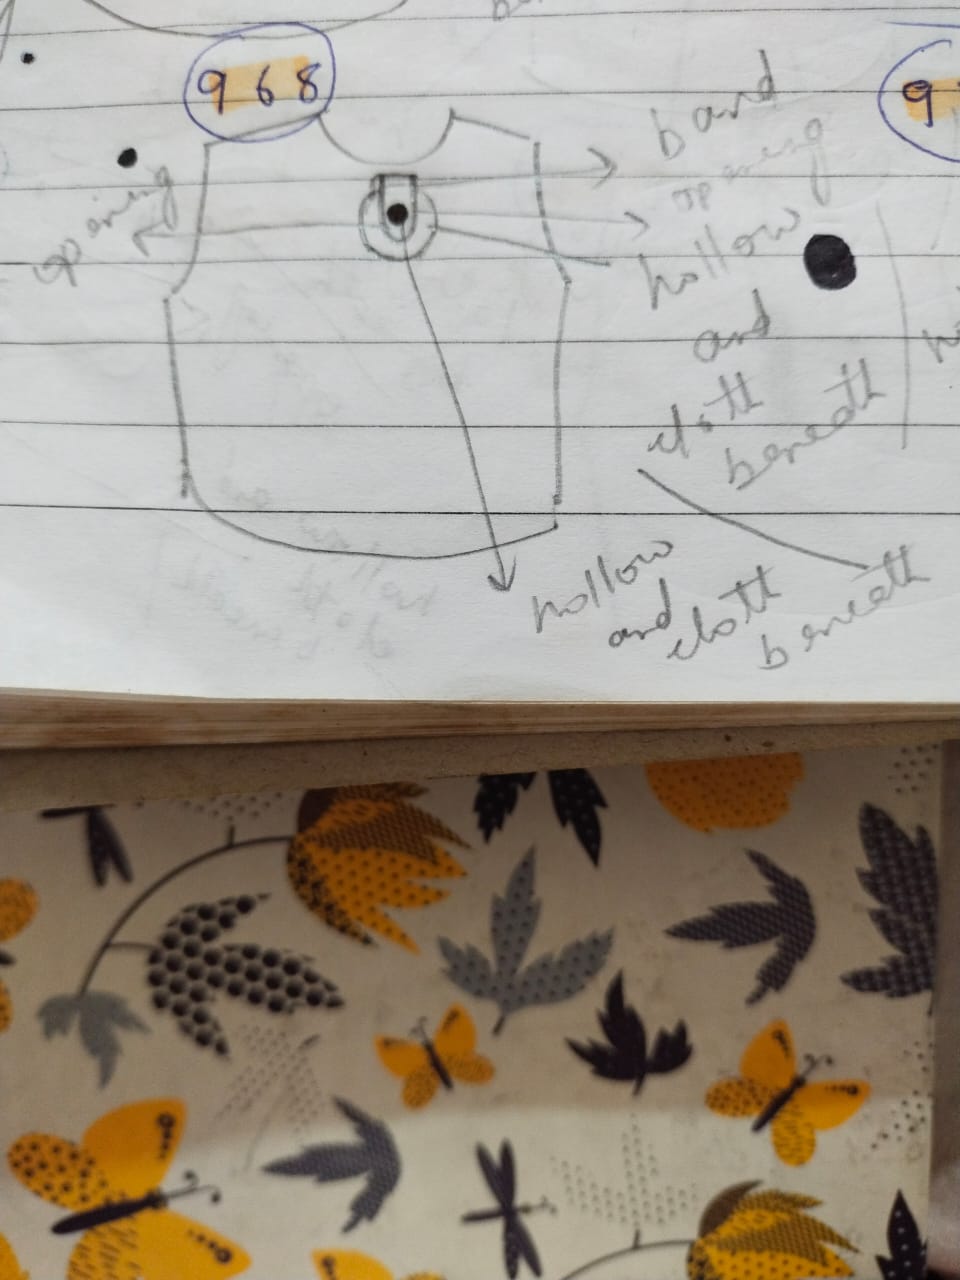 968
9
band
opening
opening
hollow
and
cloth
beneath
hollow
and cloth
beneath